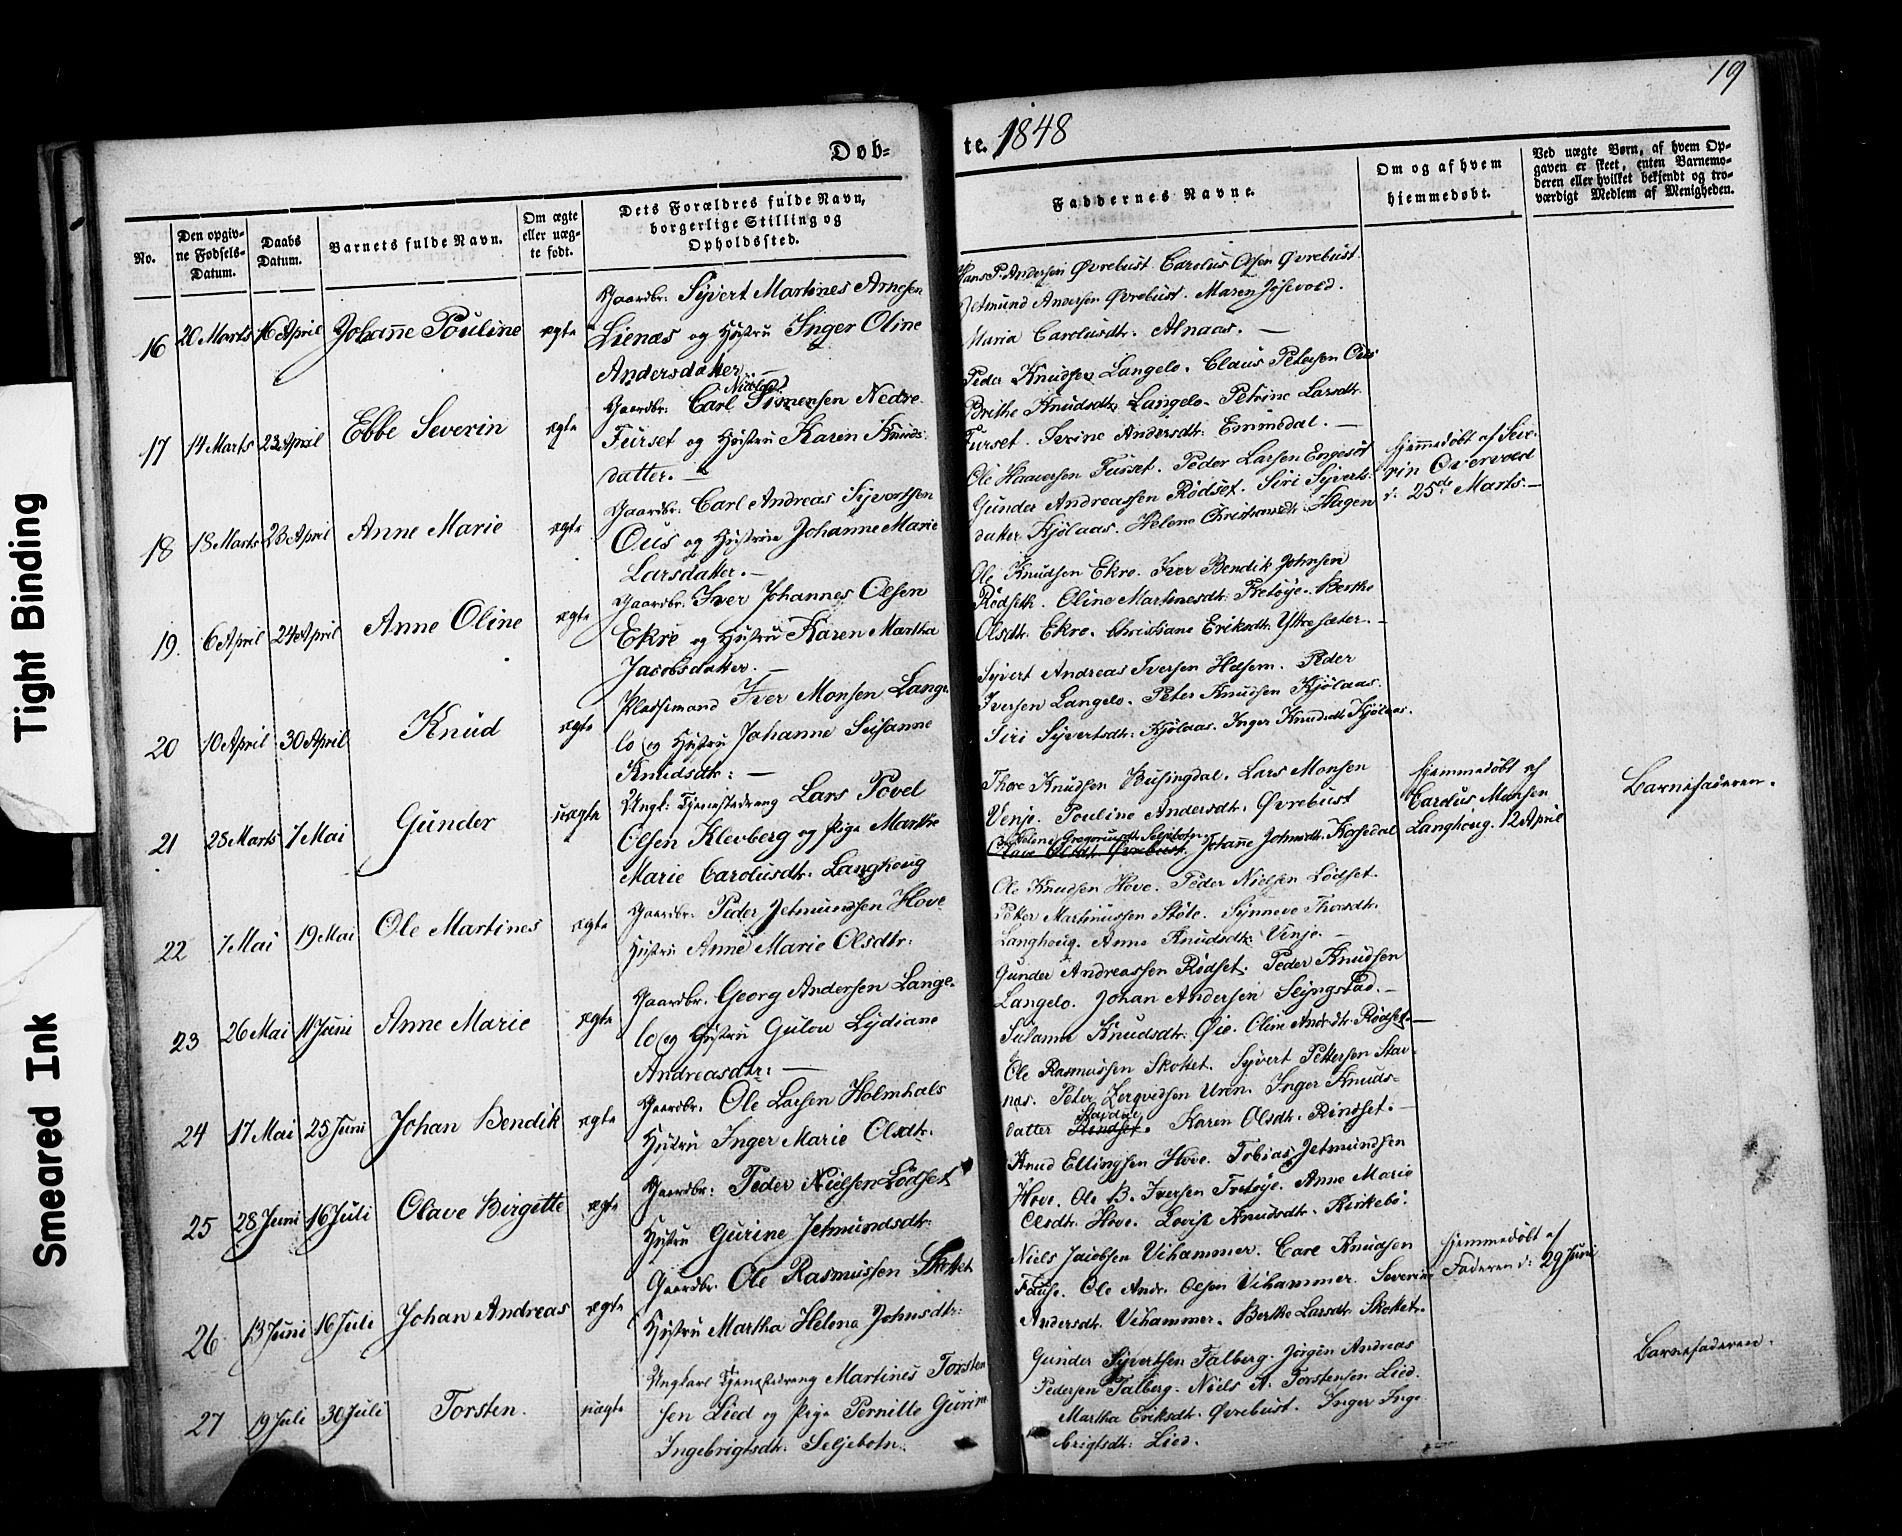 19
Døb-
te. 1848
No.
Den opgiv-
ne Fødsels-
Datum.
Daabs
Datum.
Barnets fulde Navn.
Om ægte
eller uæg-
te født.
Dets Forældres fulde Navn,
borgerlige Stilling og
Opholdssted.
Faddernes Navne.
Om og af hvem
hjemmedøbt.
Ved uægte Børn, af hvem Op-
gaven er skeet, enten Barnemo-
deren eller hvilket bekjendt og tro-
værdigt Medlem af Menigheden.
16 20 Marts 16 April Johanne Pouline ægte
Gaardbr: Syvert Martines Arnesen
Lienæs og Hustru Inger Oline
Andersdatter. —
Hans P. Andersen Øvrebust. Carolus Olsen Øvrebust.
Jetmund Andersen Øvrebust. Maren
Maria Carolusdtr. Alnaas. —
17 14 Marts 23 April Ebbe Severin ægte
Nicolai
Gaardbr: Carl Simensen Nedre
Furset og Hustru Karin Knuds-
datter. —
Peder Knudsen Langelo. Claus Petersen Ous
Brithe Knudsdtr. Langelo. Petrine Larsdtr.
Furset. Serine Andersdtr: Emmedal. —
18 18 Marts 23 April Anne Marie ægte
Gaardbr: Carl Andreas Syvertsen
Ous og Hustrue Johanne Marie
Larsdatter. —
Ole Haaversen Furset. Peder Larsen Engeset
Gunder Andreassen Rødset. Siri Syverts-
datter Kjölaas. Helene Christiansdtr Hagen
hjemmedøbt af Seve-
rin Overvold
d. 25de Marts. —
19. 6 April 24 April Anne Oline ægte
Gaardbr. Iver Johannes Olsen
Ekre og Hustru Karen Martha
Jacobsdatter. —
Ole Knudsen Ekre. Iver Bendik Johnsen
Rødseth. Oline Martinesdtr: Fretøye. Berthe
Olsdtr. Ekre. Christiane Eriksdtr. Ytresæter. -
20 10 April 30 April Knud ægte
Pladsemand Iver Monsen Lange-
lo og Hustru Johanne Susanne
Knudsdtr: —
Syvert Andreas Iversen Hdsem. Peder
Iversen Langelo. Peter Knudsen Kjölaas.
Siri Syvertsdtr: Kjölaas. Inger Knudsdtr Kjölaas.
21 28 Marts 7 Mai Gunder uægte
Ungk: Tjenestedreng Lars Povel
Olsen Klevberg og Pige Marthe
Marie Carolusdtr. Langhoug
Thore Knudsen Busingdal. Lars Monsen
Venje. Pouline Andersdtr. Øvrebust
Helene Gregoriusdtr Seljebotn.
Olave Olsdtr. Øvrebust. Johanne Johnsdtr. Korsedal
hjemmedøbt af
Carolus Monsen
Langhoug. 12 April
Barnefaderen.
22 7 Mai 19 Mai Ole Martines ægte
Gaardbr. Peder Jetmundsen Hove
Hustru Anne Marie Olsdtr:
Ole Knudsen Hove. Peder Nielsen Lødset.
Petter Martinussen Støle. Synneve Thoresdtr.
Langhoug. Anne Knudsdtr. Venje. —
23 26 Mai 11 Juni Anne Marie ægte
Gaardbr. Georg Andersen Lange-
lo og Hustru Gulou Lydiane
Andreasdtr: —
Gunder Andreassen Rødset. Peder Knudsen
Langelo. Johan Andersen Slyngstad. —
Susanne Knudsdtr: Øie. Oline Andrdtr. Rødset. —
24 17 Mai 25 Juni Johan Bendik ægte
Gaardbr. Ole Larsen Holmhals
Hustru Inger Marie Olsdtr.
Ole Rasmussen Skottet. Syvert Pettersen Stav-
næs. Peter Zerqvidsen Uren. Inger Knuds-
datter Rindset. Karen Olsdtr. Rindset. —
25 28 Juni 16 Juli Olave Birgitte ægte
Gaardbr: Peder Nielsen Lødset
Hustru Gurine Jetmundsdtr:
Knud Ellingsen Hove. Tobias Jetmundsen
Hove. Ole B. Iversen Fretøye. Anne Marie
Olsdtr. Hove. Lovise Knudsdtr. Kirkebø.
26. 13 Juni 16 Juli Johan Andreas ægte
Gaardbr. Ole Rasmussen Skottet
Hustru Martha Helene Johnsdtr:
Niels Jacobsen Vihammer. Carl Knudsen
Fause. Ole Andr. Olsen Vihammer. Severine
Andersdtr. Vihammer. Berthe Larsdtr. Skottet.
hjemmedøbt af
Faderen d: 29 Juni
27 19 Juli 30 Juli Torsten. uægte
Ungkarl Tjenestedreng Martines Torsten-
sen Lied og Pige Pernille Gurine
Ingebrigtsdtr: Seljebotn.
Gunder Syvertsen Talberg. Jørgen Andreas
Pedersen Talberg. Niels A. Torstensen Lied.
Martha Eriksdtr. Øvrebust. Inger Inge-
brigtsdtr: Lied.
Barnefaderen.
Tight Binding
Smeared Ink